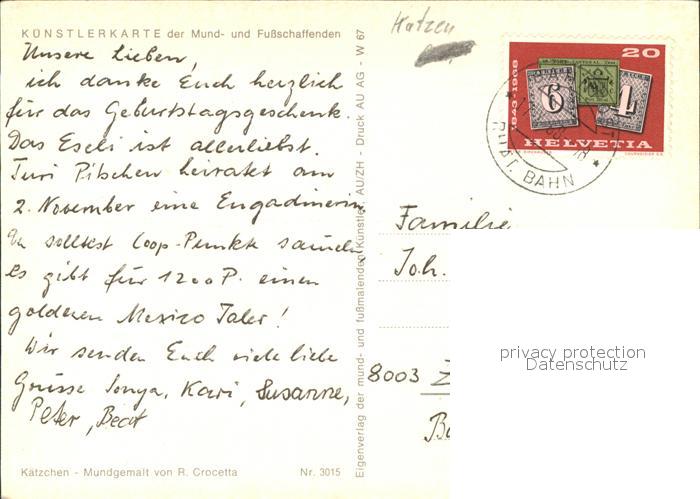 KÜNSTLERKARTE der Mund- und Fußschaffenden
Unsere Lieben,
ich danke Euch herzlich
für das Geburtstagsgeschenk.
Das Eseli ist allerliebst.
Turi Pitschen heiratet am
2. November eine Engadinerin
Du solltest Coop-Punkte sammeln,
es gibt für 1200 P. einen
goldenen Mexico Taler!
Wir senden Euch viele liebe
Grüsse Sonya, Kari, Susanne,
Peter, Beat
Kätzchen - Mundgemalt von R. Crocetta
Nr. 3015
Eigenverlag der mund- und fußmalenden Künstler, AU/ZH - Druck AU AG - W 67
Katzen
1843-1968
20
6
4
HELVETIA
RHAT. BAHN
Familie
Joh.
8003 Z
privacy protection
Datenschutz